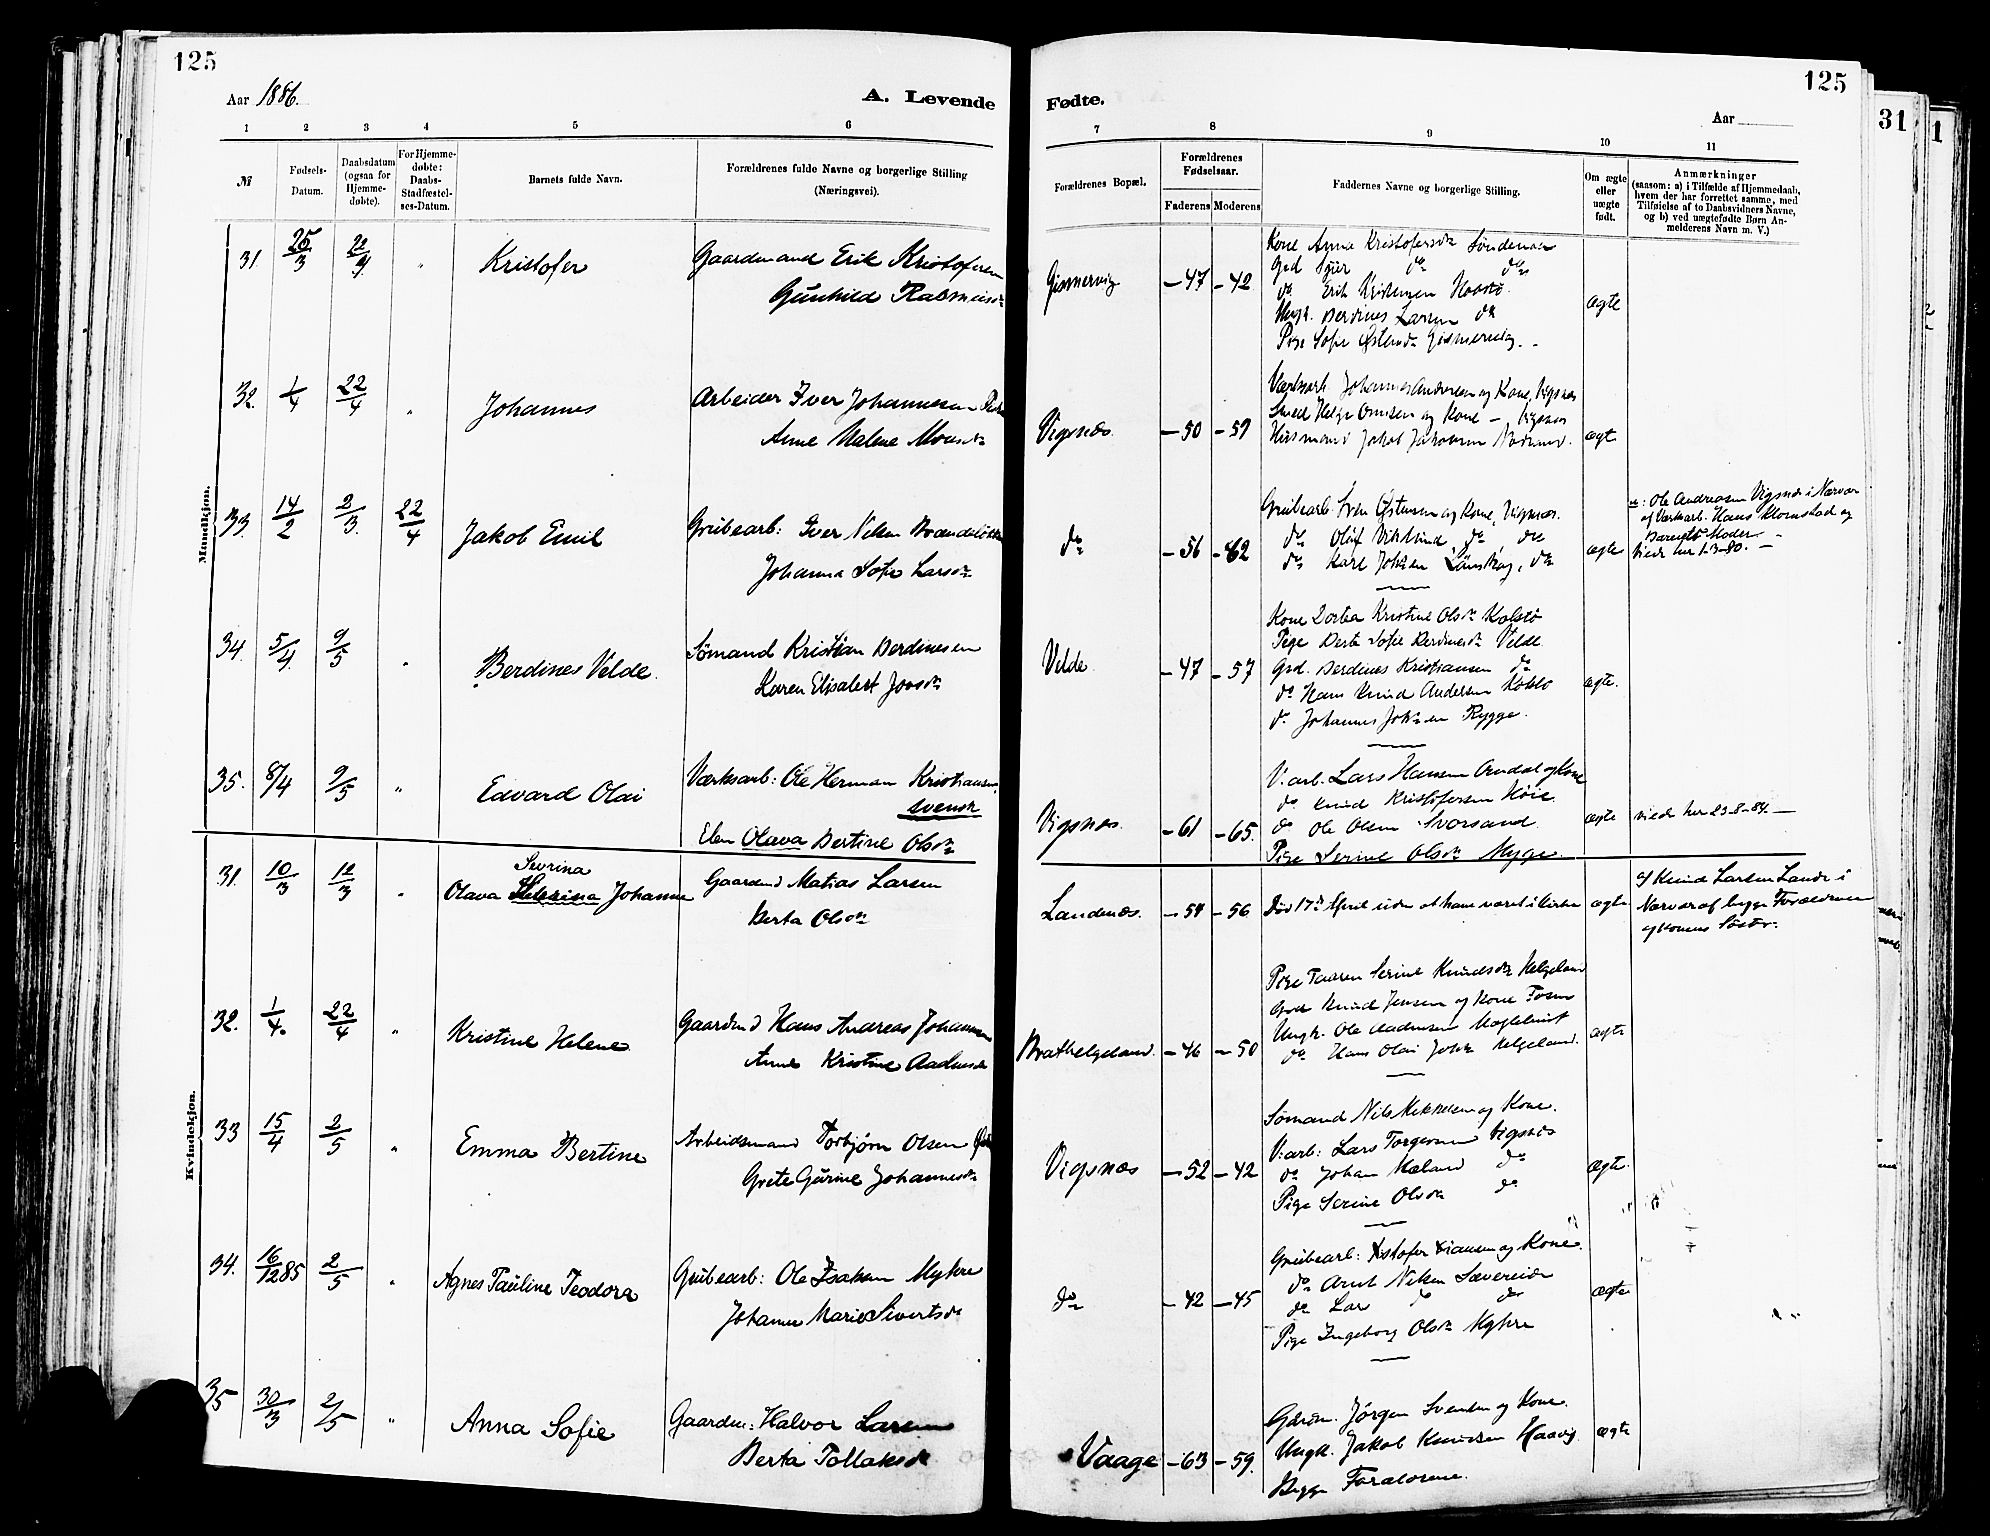 125
125
Aar 1886.
A. Levende
Fødte.
Aar
31
1
1 2 3 4 5 6 7 8 9 10 11
№
Fødsels-
Datum.
Daabsdatum
(ogsaa for
Hjemme-
døbte).
For Hjemme-
døbte:
Daabs-
Stadfæstel-
ses-Datum.
Barnets fulde Navn.
Forældrenes fulde Navne og borgerlige Stilling
(Næringsvei).
Forældrenes Bopæl.
Forældrenes
Fødselsaar.
Faderens Moderens
Faddernes Navne og borgerlige Stilling.
Om ægte
eller
uægte
født.
Anmærkninger
(saasom: a) i Tilfælde af Hjemmedaab,
hvem der har forrettet samme, med
Tilføielse af to Daabsvidners Navne,
og b) ved uægtefødte Børn An-
melderens Navn m. V.)
Mandkjøn.
31. 25/3 " Kristofer
Gaardmand Erik Kristofersen
Gunhild Rasmusdr
Gismervig -47 -42
Kone Anna Kristofersdr Søndenaa
Erik Kristensen
Ungk. Berdines Larsen do
Pige Sofie Østensdr Gismervig.
ægte
32. 1/4 22/4 " Johannes
Arbeider Iver Johannesen
Anne Malene Monsdr
Vigsnæs. -50 -57
Værksarb. Johannes Andersen og Kone, Vigsnæs
Smed Helge Omsen og Kone - Vigsnæs
Husmand Jakob Jakobsen
ægte
33. 14/2 2/3. 22/4 Jakob Emil
Grubearb: Iver Nilsen
Johanna Sofie Larsdr
do -56 -62
Grubearb. Sven Østensen og Kone, Vigsnæs.
do Olaf do do
do Karl Johsen do
ægte
Ole Andreasen Vigsnæs i Nærvær
af Værksarb. Hans Klomstad og
Barnets Moder.
Viede her 1-3-80.
34. 5/4. 9/5 " Berdines Velde.
Sømand Kristian Berdinesen
Karen Elisabet Joosdr
Velde. -47 -57
Kone Dortea Kristine Olsdr Kolstø
Pige Berte Sofie Berdinesdr Velde.
Grd. Berdines Kristiansen do
do Hans Knud Andersen Kolstø
do Johannes Johsen Rygge.
ægte.
35. 8/4 9/5 " Edvard Olai
Værksarb: Ole Herman Kristiansen,
svensk
Elen Olava Bertine Olsdr
Vigsnæs. -61 -65.
V. arb. Lars Hansen Arndal og Kone
do Knud Kristofersen Høie.
do Ole Olsen Svorsand.
Pige Serine Olsdr Myge.
ægte
viede her 23-8-84.
Kvindekjøn.
31. 10/3 12/3 "
Sevrina
Olava Johanne
Gaardmd Matias Larsen
Berta Olsdr
Landenæs. -54 -56
Død 17de April uden at have været i Kirken
ægte
af Knud Larsen Lande i
Nærvær af begge Forældrene
og Konens Søster.
32. 1/4. 22/4 " Kristine Helene
Gaardmd Hans Andreas Johannesen
Anne Kristine Aadnesdr
Brathelgeland. -46 -50
Pige Taaren Serine Knudsdr Helgeland
Grd Knud Jensen og Kone Fosen
Ungk. Ole Aadnesen
do Hans Olai Johs Helgeland.
ægte
33 15/4 2/5 " Emma Bertine
Arbeidsmand Torbjørn Olsen
Grete Gurine Johannesdr
Vigsnæs -52 -42
Sømand Nils Mikkelsen og Kone.
V. arb: Lars Torgersen Vigsnæs
do Johan Mæland do
Pige Serine Olsdr do
ægte.
34. 16/12 85 2/5 " Agnes Pauline Teodora
Grubearb: Ole Isaksen Myhre
Johanne Marie Sivertsdr
do -42 -45
do Arnt Nilsen Sævereide
do Lars do do
Pige Ingeborg Olsdr Myhre
ægte
35 30/3 2/5 " Anna Sofie
Gaardm: Halvor Larsen
Berta Tollaksdr
Vaage -63 -59.
Gaardm. Jørgen Svendsen og Kone.
Ungk. Jakob Knudsen Haavig.
Begge Forældrene.
ægte